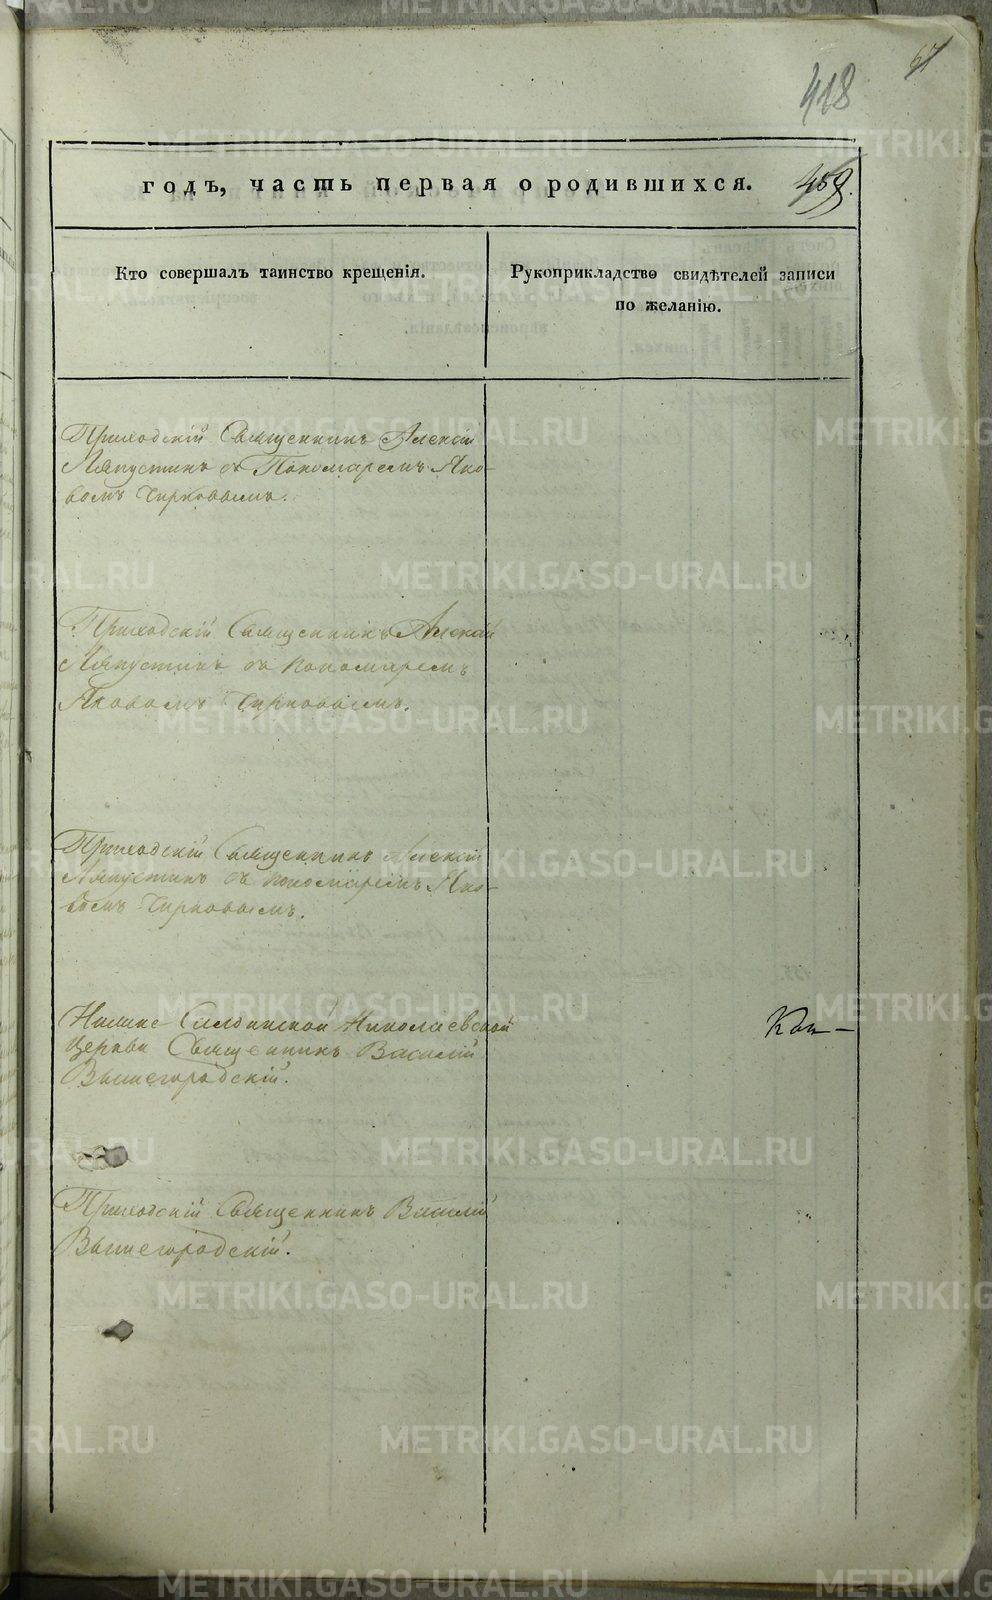 67
418
годъ, часть первая о родившихся. 459.
Кто совершалъ таинство крещенія.
Рукоприкладство свидѣтелей записи
по желанію.
Приходскій Священникъ Алексій
Ляпустинъ съ Пономаремъ Яко-
вомъ Чирковымъ.
Приходскій Священникъ Алексій
Ляпустинъ съ пономаремъ
Яковомъ Чирковымъ.
Приходскій Священникъ Алексій
Ляпустинъ съ пономаремъ Яко-
вомъ Чирковымъ.
Нижне-Салдинской Николаевской
Церкви Священникъ Василій
Вышегородскій.
Приходскій Священникъ Василій
Вышегородскій.
METRIKI.GASO-URAL.RU